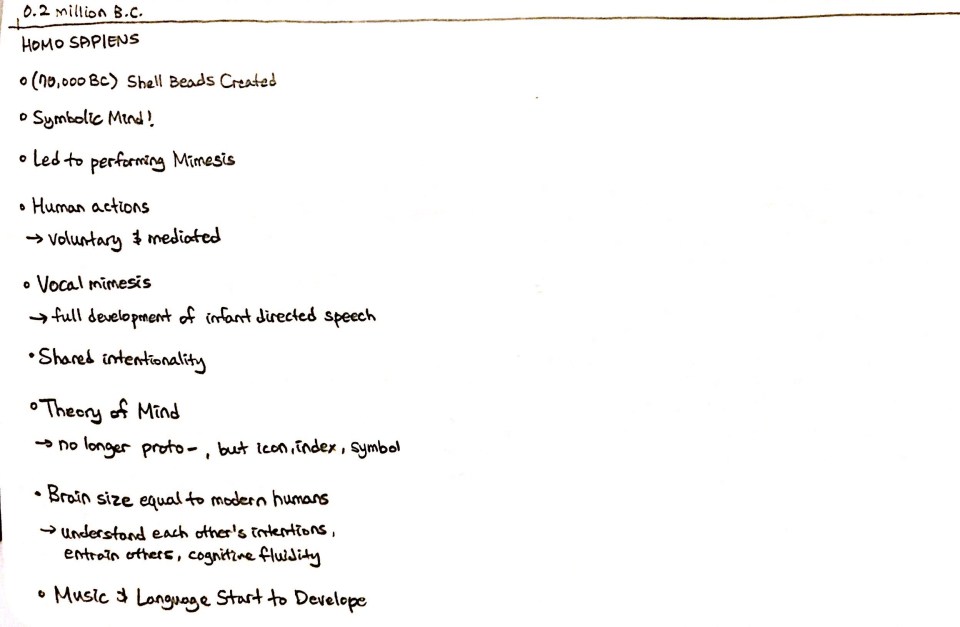 0.2 million B.C.
HOMO SAPIENS
o (70,000 BC) Shell Beads Created
o Symbolic Mind!
o Led to performing Mimesis
o Human actions
→ voluntary & mediated
o Vocal mimesis
→ full development of infant directed speech
• Shared intentionality
o Theory of Mind
→ no longer proto-, but icon, index, symbol
• Brain size equal to modern humans
→ understand each other's intentions,
entrain others, cognitive fluidity
o Music & Language Start to Develope